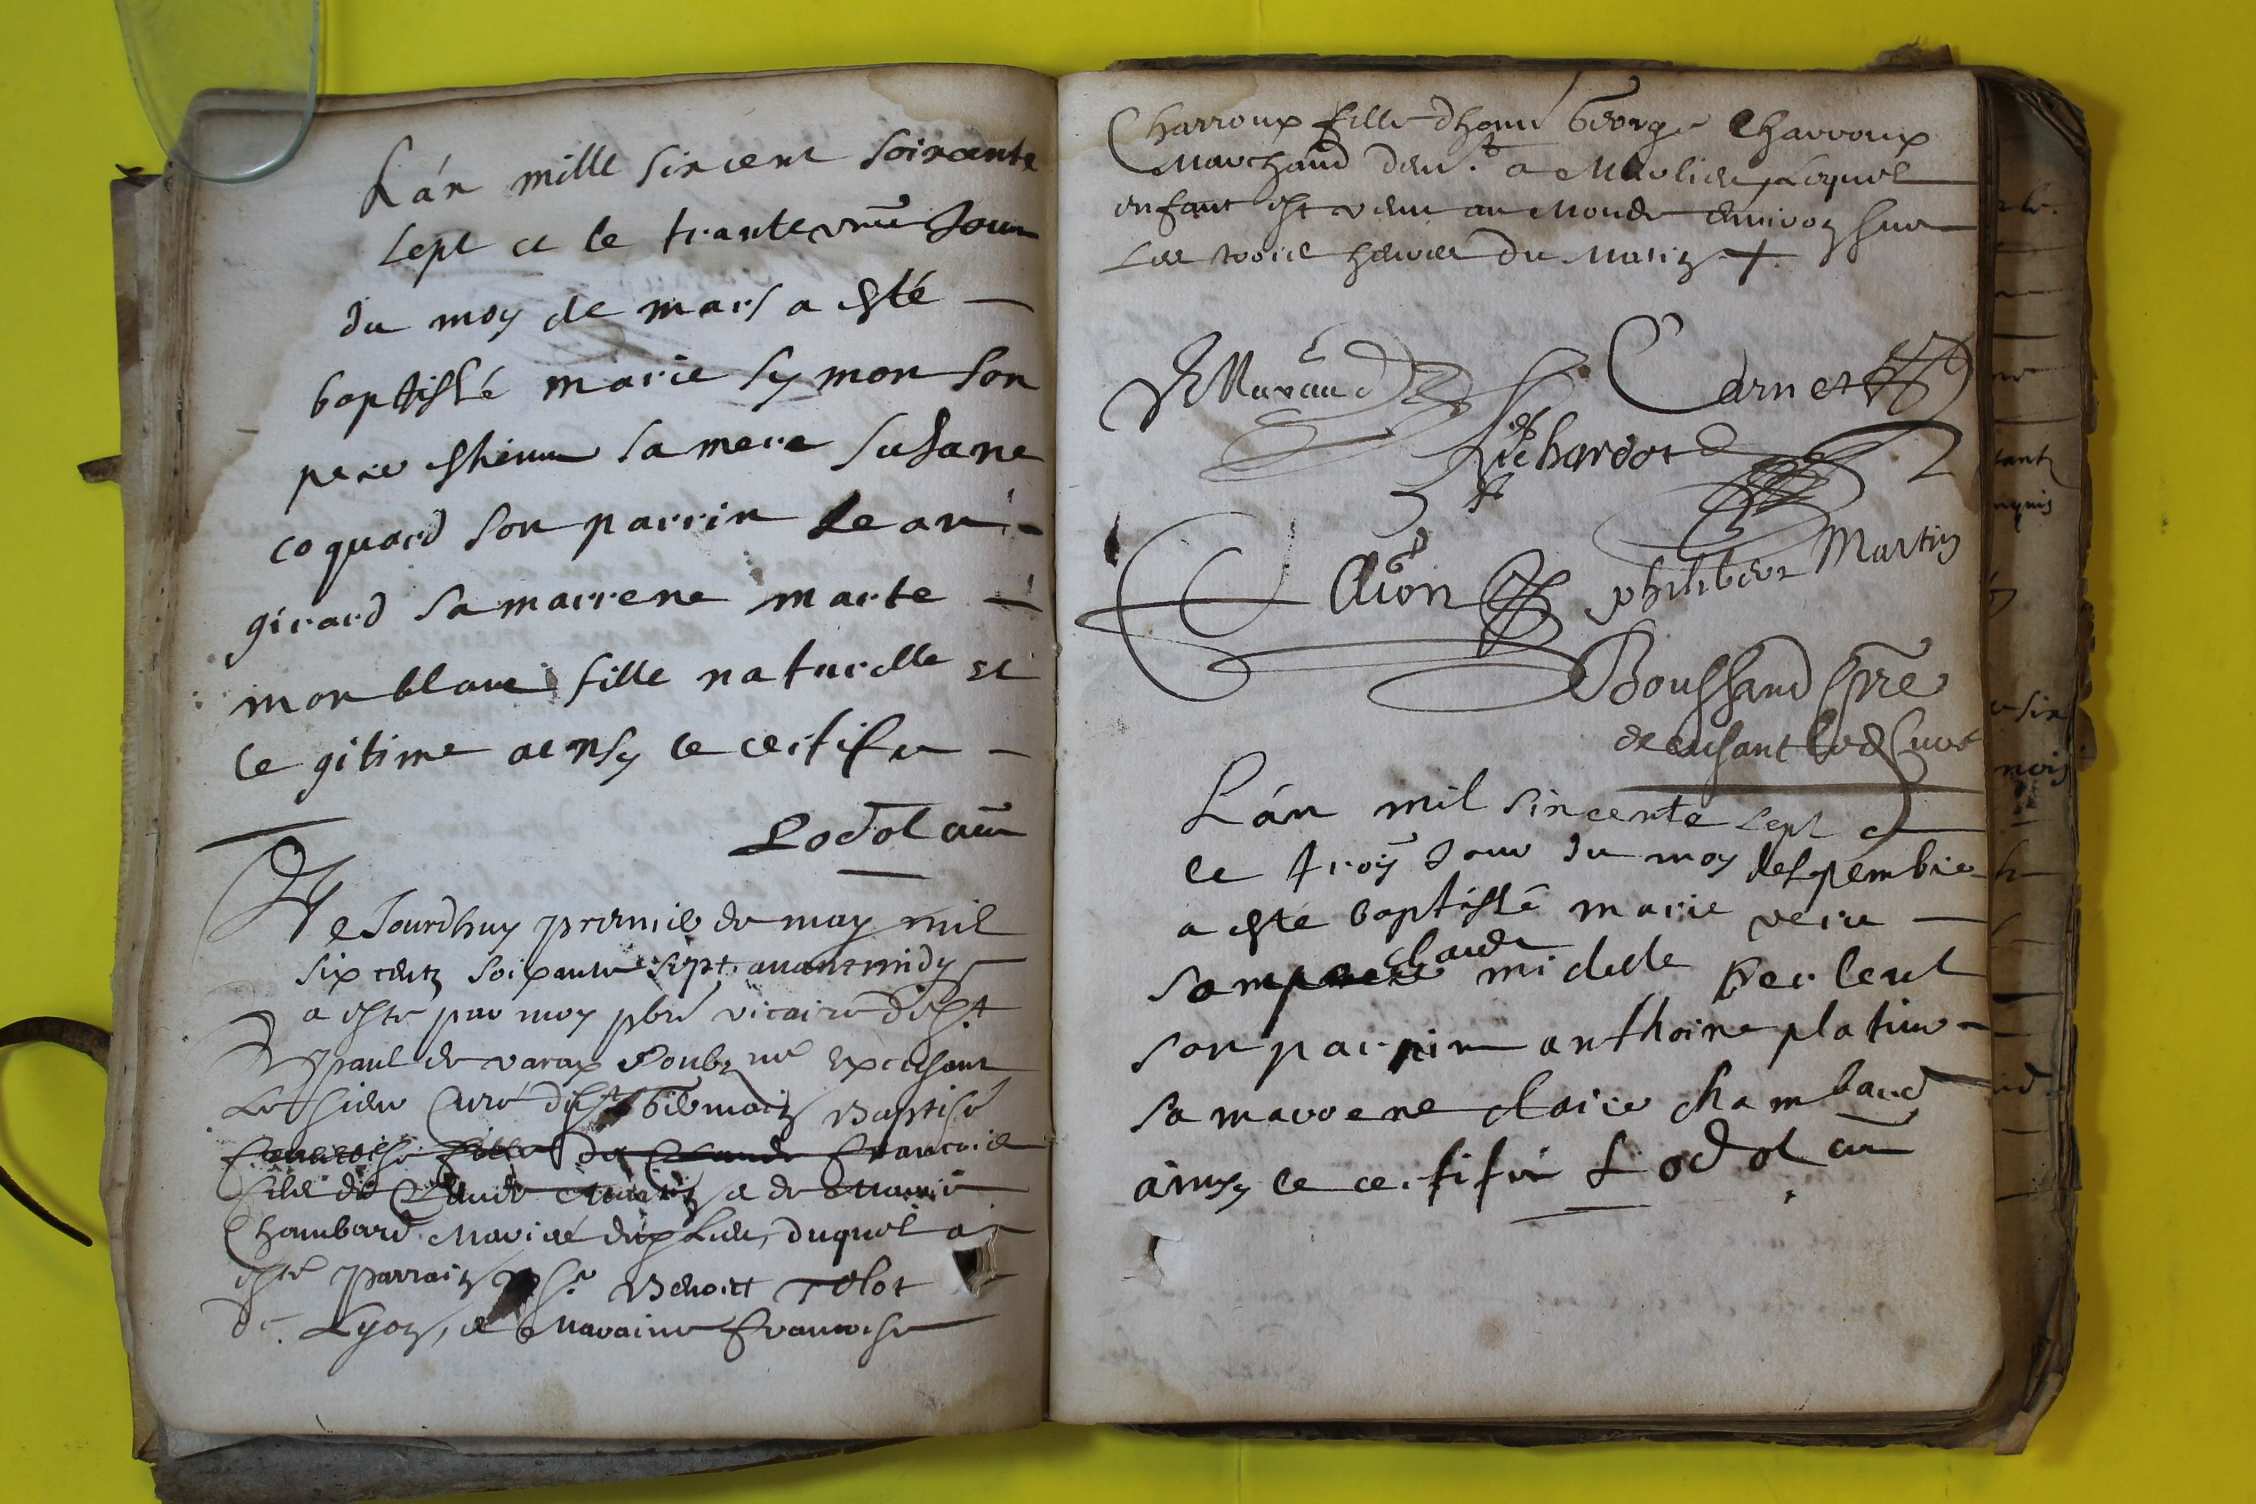 L'án mille sincent soixante
sept et le trante vnie Jour
du moy de mars a esté
baptissé marie symon son
pere estienne sa mere susane
coquard son parrin Jean
girard sa marrene marte
monblanc fille naturelle et
legitime ainsy le certifie
Lodol curé
Ce Jourdhuy premier de may mil
six centz soixante sept, auant midy
a esté par moy pbré vicaire de St
paul de varax Soubzné excusant
Le Sieur Curé de St germain Baptisé
Francois
filz de Claude Martin et de Marie
Chambard Mariéz dud. Lieu, duquel a
esté Parrain Sr. Benoict
de Lyon, et Maraine Francoise
Charroux fille dhonn George Charroux
Marchand a Lequel
enfant est venu au Monde enuiron sur
Les trois heures du Matin
Maraud
Carnet
Richardot
philibert Martin
Boussand pre
excusant led Curé
L'án mil sincente sept et
le troy Jour du moy de sepembre
a esté baptissé marie
claude
sa mere michelle
son parrin anthoine platiere
sa marrene claire chambard
ainsy le certifie Lodol curé